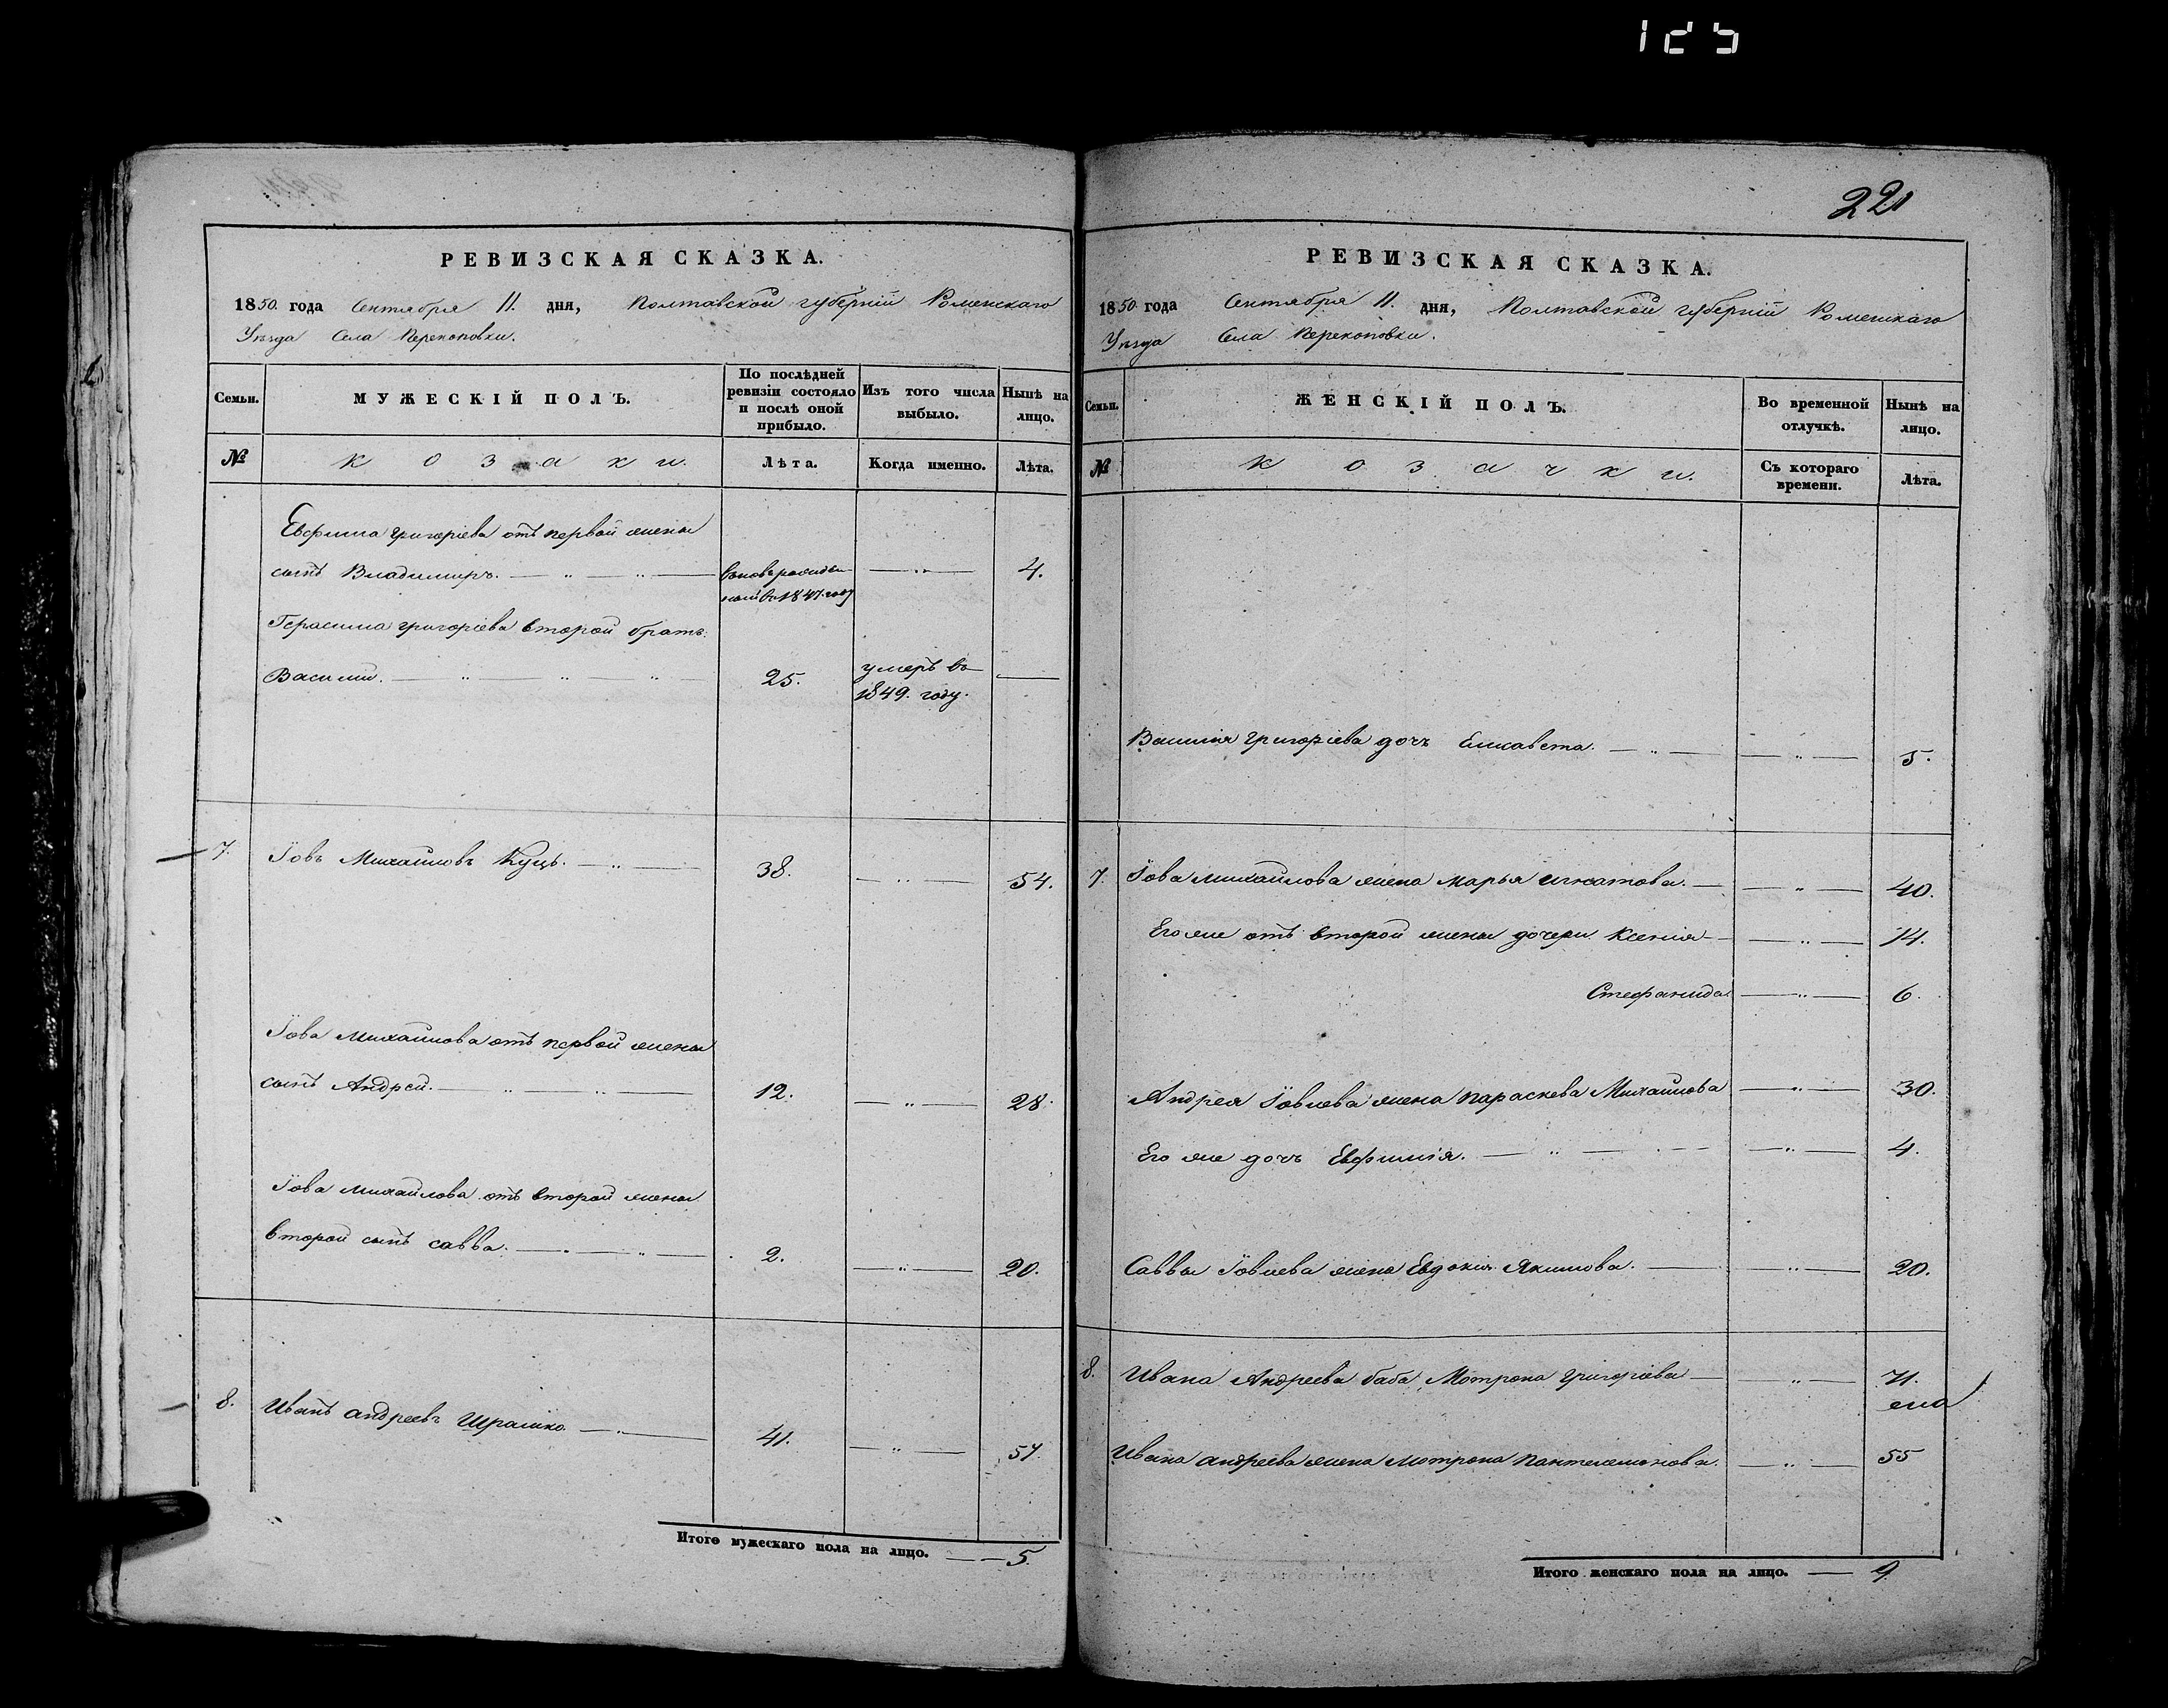 125
221
РЕВИЗСКАЯ СКАЗКА.
1850. года Сентября 11. дня, Полтавской губерніи Роменскаго
Уѣзда Села Перекоповки.
Семьи.
МУЖЕСКІЙ ПОЛЪ.
По послѣдней ревизіи состояло и послѣ оной прибыло.
Изъ того числа выбыло.
Нынѣ на лицо.
№
Козаки.
Лѣта.
Когда именно.
Лѣта.
Евфима григоріева отъ первой жены
сынъ Владимиръ. вновь рожден 4.
ный въ 1847. году
Герасима григоріева второй братъ
Василій. 25. умеръ въ
1849. году.
7. Іовъ Михайловъ Куць. 38. 54.
Іова Михайлова отъ первой жены
сынъ Андрей. 12. 28.
Іова михайлова отъ второй жены
второй сынъ савва. 2. 20.
8. Иванъ андреевъ Шрамко 41. 57.
Итого мужескаго пола на лицо. 5.
РЕВИЗСКАЯ СКАЗКА.
1850. года Сентября 11. дня, Полтавской губерніи Роменскаго
Уѣзда Села Перекоповки.
Семьи.
ЖЕНСКІЙ ПОЛЪ.
Во временной отлучкѣ.
Нынѣ на лицо.
№
Козачки.
Съ котораго времени.
Лѣта.
Василія григоріева дочь Елисавета. 5.
7. Іова михайлова жена марья игнатова. 40.
Его же отъ второй жены дочери Ксенія 14.
Стефанида 6.
Андрея Іовлева жена параскева Михайлова 30.
Его же дочь Евфимія. 4.
Саввы Іовлева жена Евдокия Якимова. 20.
8. Ивана Андреева баба Мотрона григоріева 71.
Ивана андреева жена мотрона пантелемонова. 55
Итого женскаго пола на лицо. 9